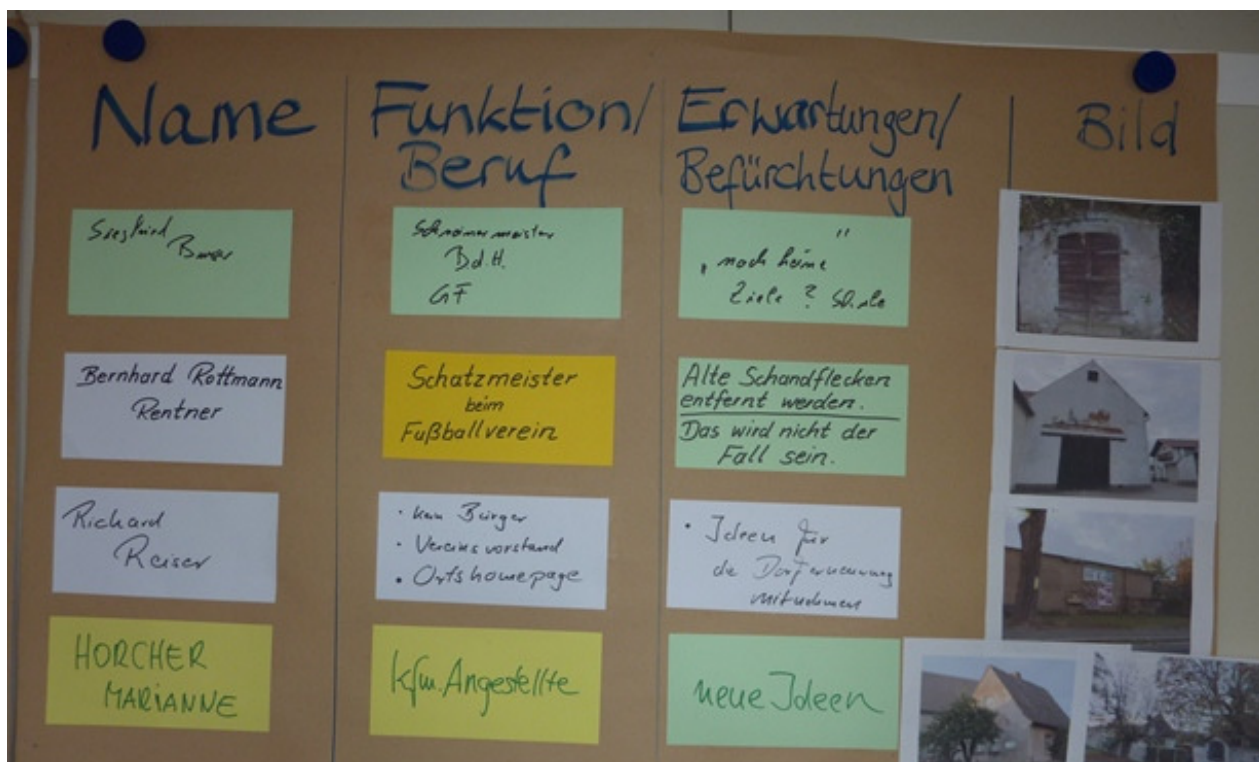 Name
Funktion/
Beruf
Erwartungen/
Befürchtungen
Bild
Siegfried
Schreinermeister
B.d.H.
GF
„noch keine"
Ziele ?
Bernhard Rottmann
Rentner
Schatzmeister
beim
Fußballverein
Alte Schandflecken
entfernt werden.
Das wird nicht der
Fall sein.
Richard
Reiser
• kein Bürger
• Vereinsvorstand
• Ortshomepage
• Ideen für
die Dorferneuerung
mitnehmen
HORCHER
MARIANNE
kfm. Angestellte
neue Ideen